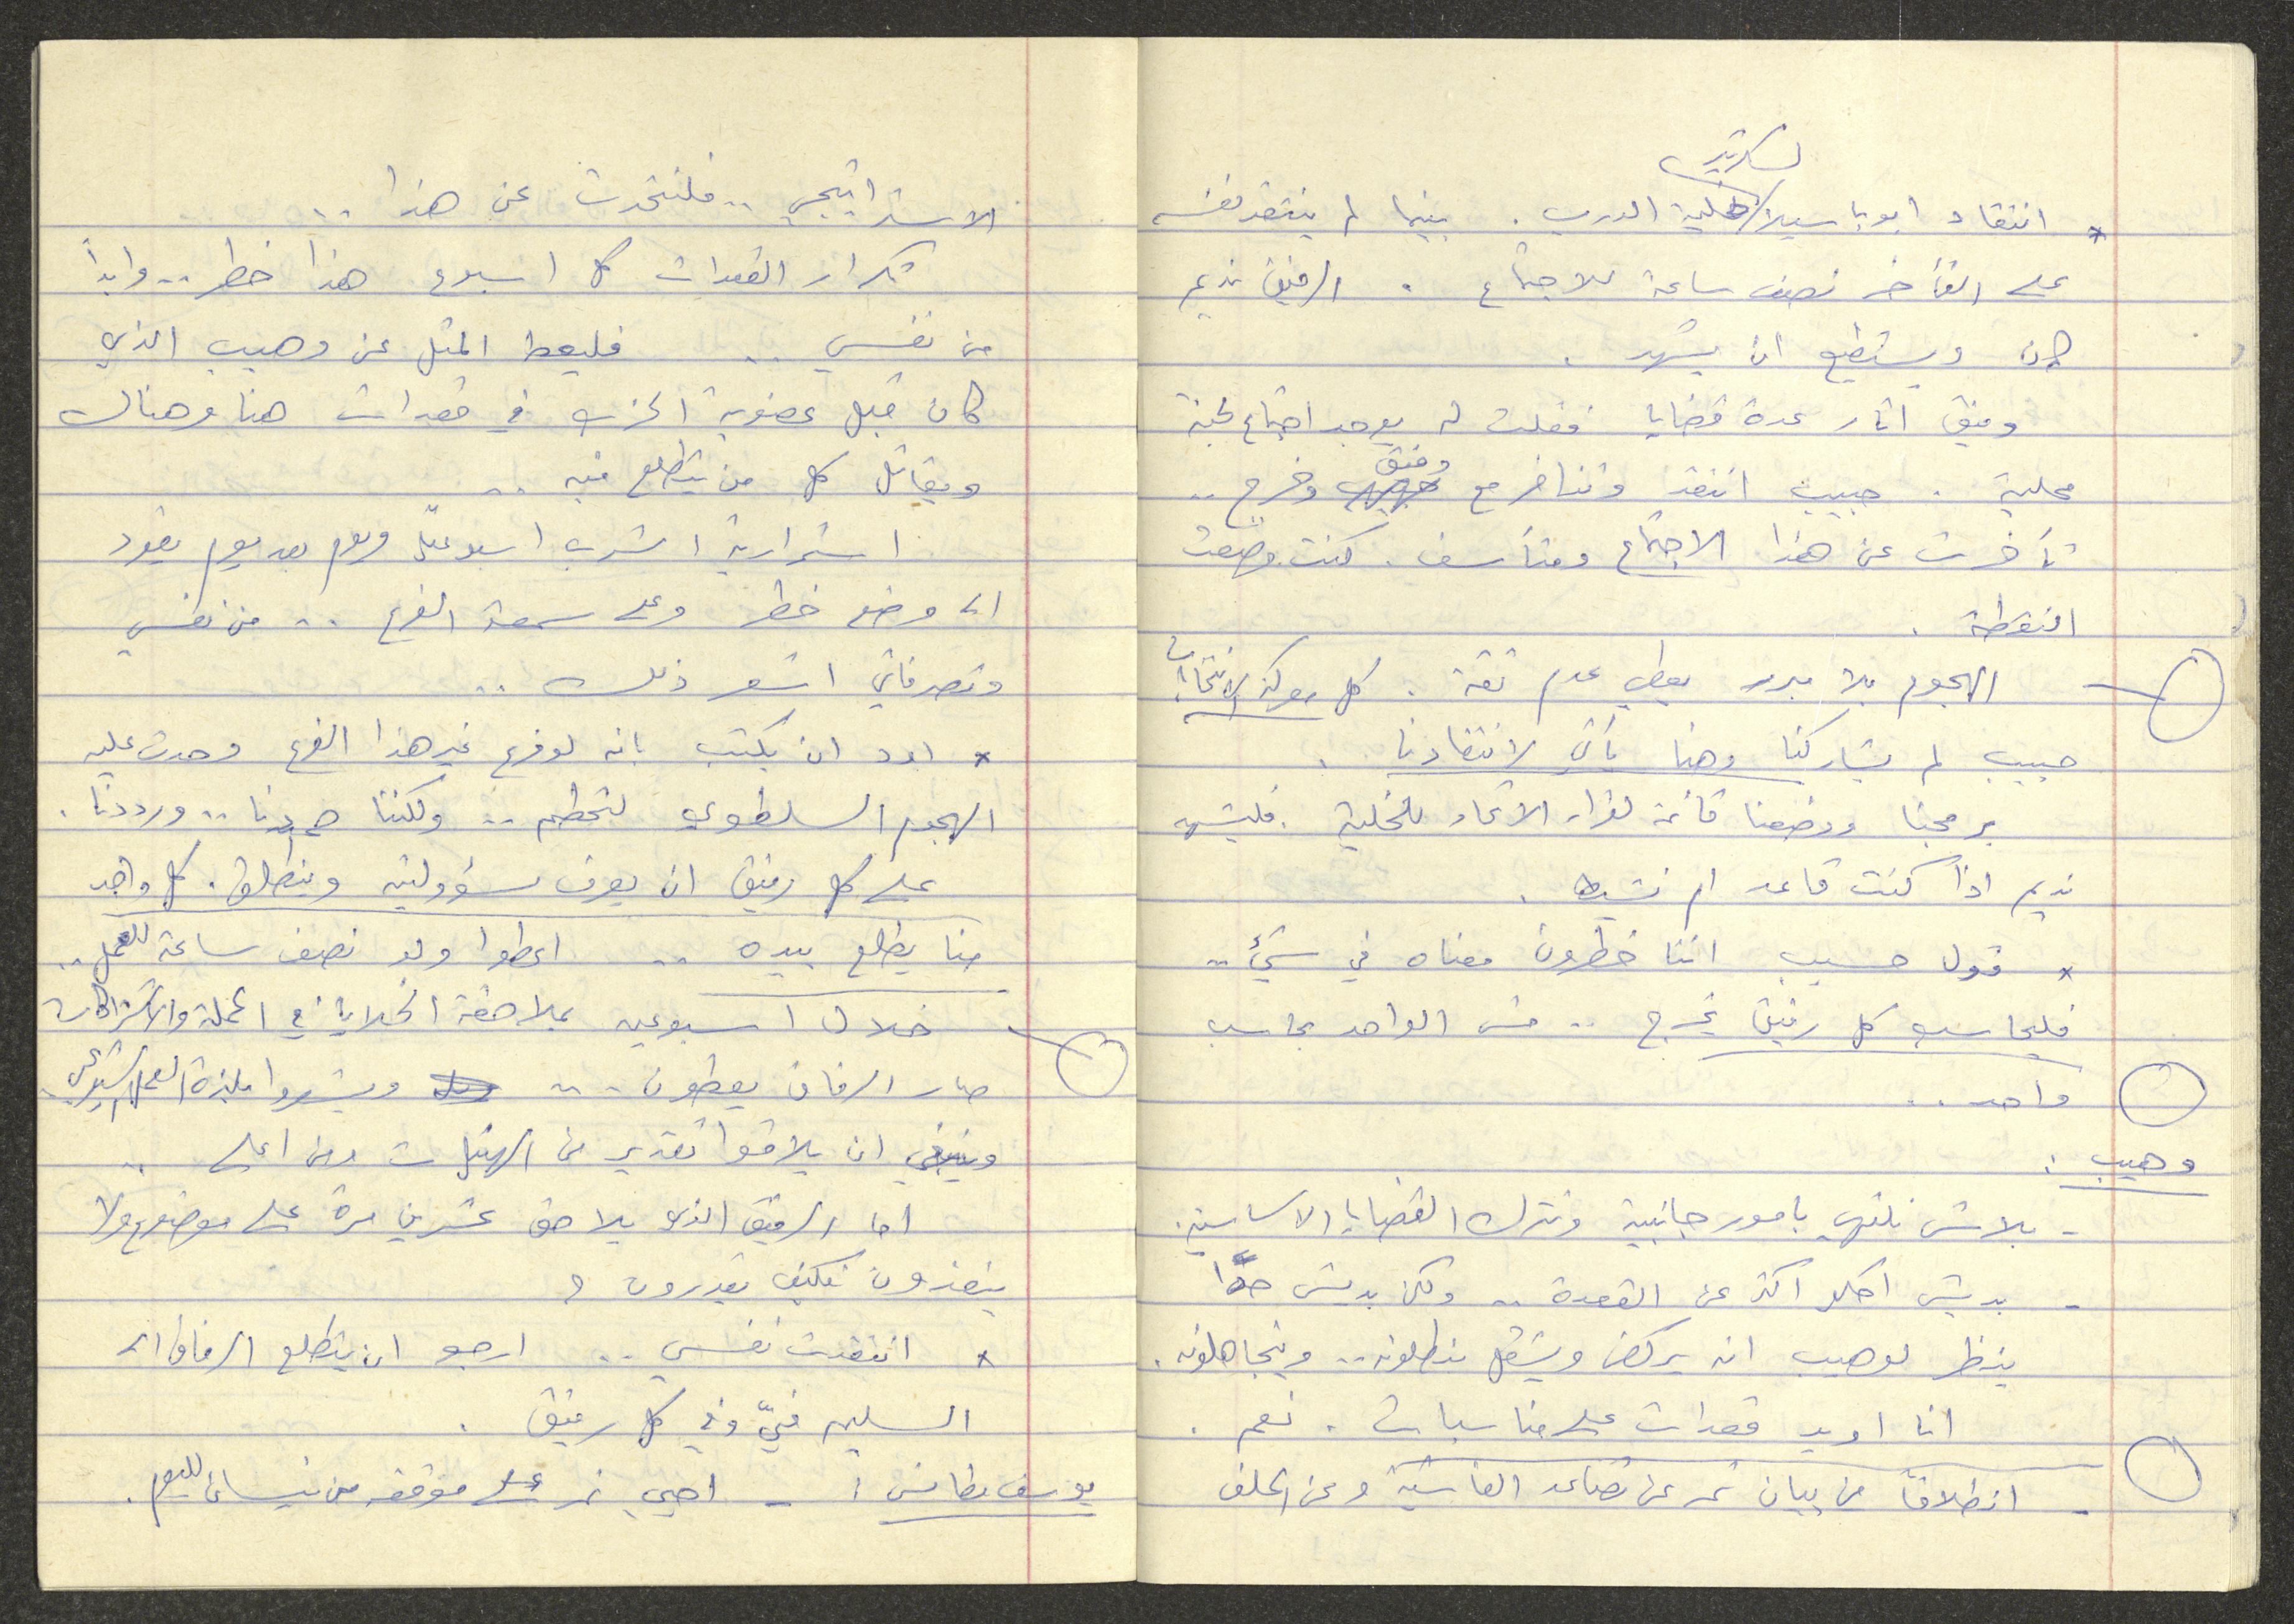 لسكرتير
* انتقاد ابو باسيلا لخلية الدرب . بينما لم ينتقد نفسه
على التأخر نصف ساعة للاجتماع . الرفيق نديم
كان ويستطيع ان يشهد .
رفيق اثار عدة قضايا فقلت له يوجد اجتماع لجنة
محلية . حبيب انتقد وتناخر مع رفيق وخرج ..
تأخرت عن هذا الاجتماع ومتأسف . كنت وضعت
النقطة .
الهجوم بلا مبرر يعطي عدم ثقة . كل معركة الانتخابات
حبيب لم يشاركنا وهنا يأتي لانتقادنا .
برمجنا ووضعنا قائمة لقراء الاتحاد للخلية . فليشهد
نديم اذا كنت قاعد ام نشيط .
* قول حسيب اننا خطرون معناه في شيء ..
فليحاسب كل رفيق يخرج .. مش الواحد يحاسب
واحد ..
وهيب :
- بلاش نلتهي بامور جانبية ونترك القضايا الاساسية .
- بديش احكي اكثر عن القعدة .. ولكن بديش حدا
ينظر لوهيب انه يركض ويشتغل ينطلونه .. ويتجاهلونه .
انا اريد قعدات على مناسبات . نعم .
- انطلاقاً من بيان نمر عن تصاعد الفاشية وعن الحلف
الاستراتيجي .. فلنتحدث عن هذا ..
تكرار القعدات كل اسبوع هذا خطر .. وابدأ
من نفسي .. فليعط المثل عن وهيب الذي
كان قبل عضوية الحزب في قعدات هنا وهناك
ويقاتل كل من يتطلع فيه ..
استمرارية الشرب اسبوعياً ويوم بعد يوم يقود
الى وضع خطر وعلى سمعة الفرع .. من نفسي
وتصرفاتي اشعر ذلك ..
* اود ان يكتب بانه لو فرع غير هذا الفرع وحدث عليه
الهجوم السلطوي لتحطم .. ولكننا صمدنا .. ورددنا .
على كل رفيق ان يعرف مسؤوليته وينطلق . كل واحد
منا يطلع بيده .. اعطوا ولو نصف ساعة للعمل ..
خلال اسبوعين بملاحقة الخلايا في الحملة والاشتراكات
صار الرفاق يعطون .. ويشعروا بلذة العمل الشيوعي .
وينبغي ان يلاقوا تقدير من الهيئات ومن اعلى ..
اما الرفيق الذي يلاحق عشرين مرة على موضوع ولا
ينفذون فكيف يقدرون ؟
* انتقدت نفسي .. ارجو ان يتطلع الرفاق الى
السلبي فيّ وفي كل رفيق .
يوسف بطانس : - احيي نمر على موقفه من نيسان لليوم .